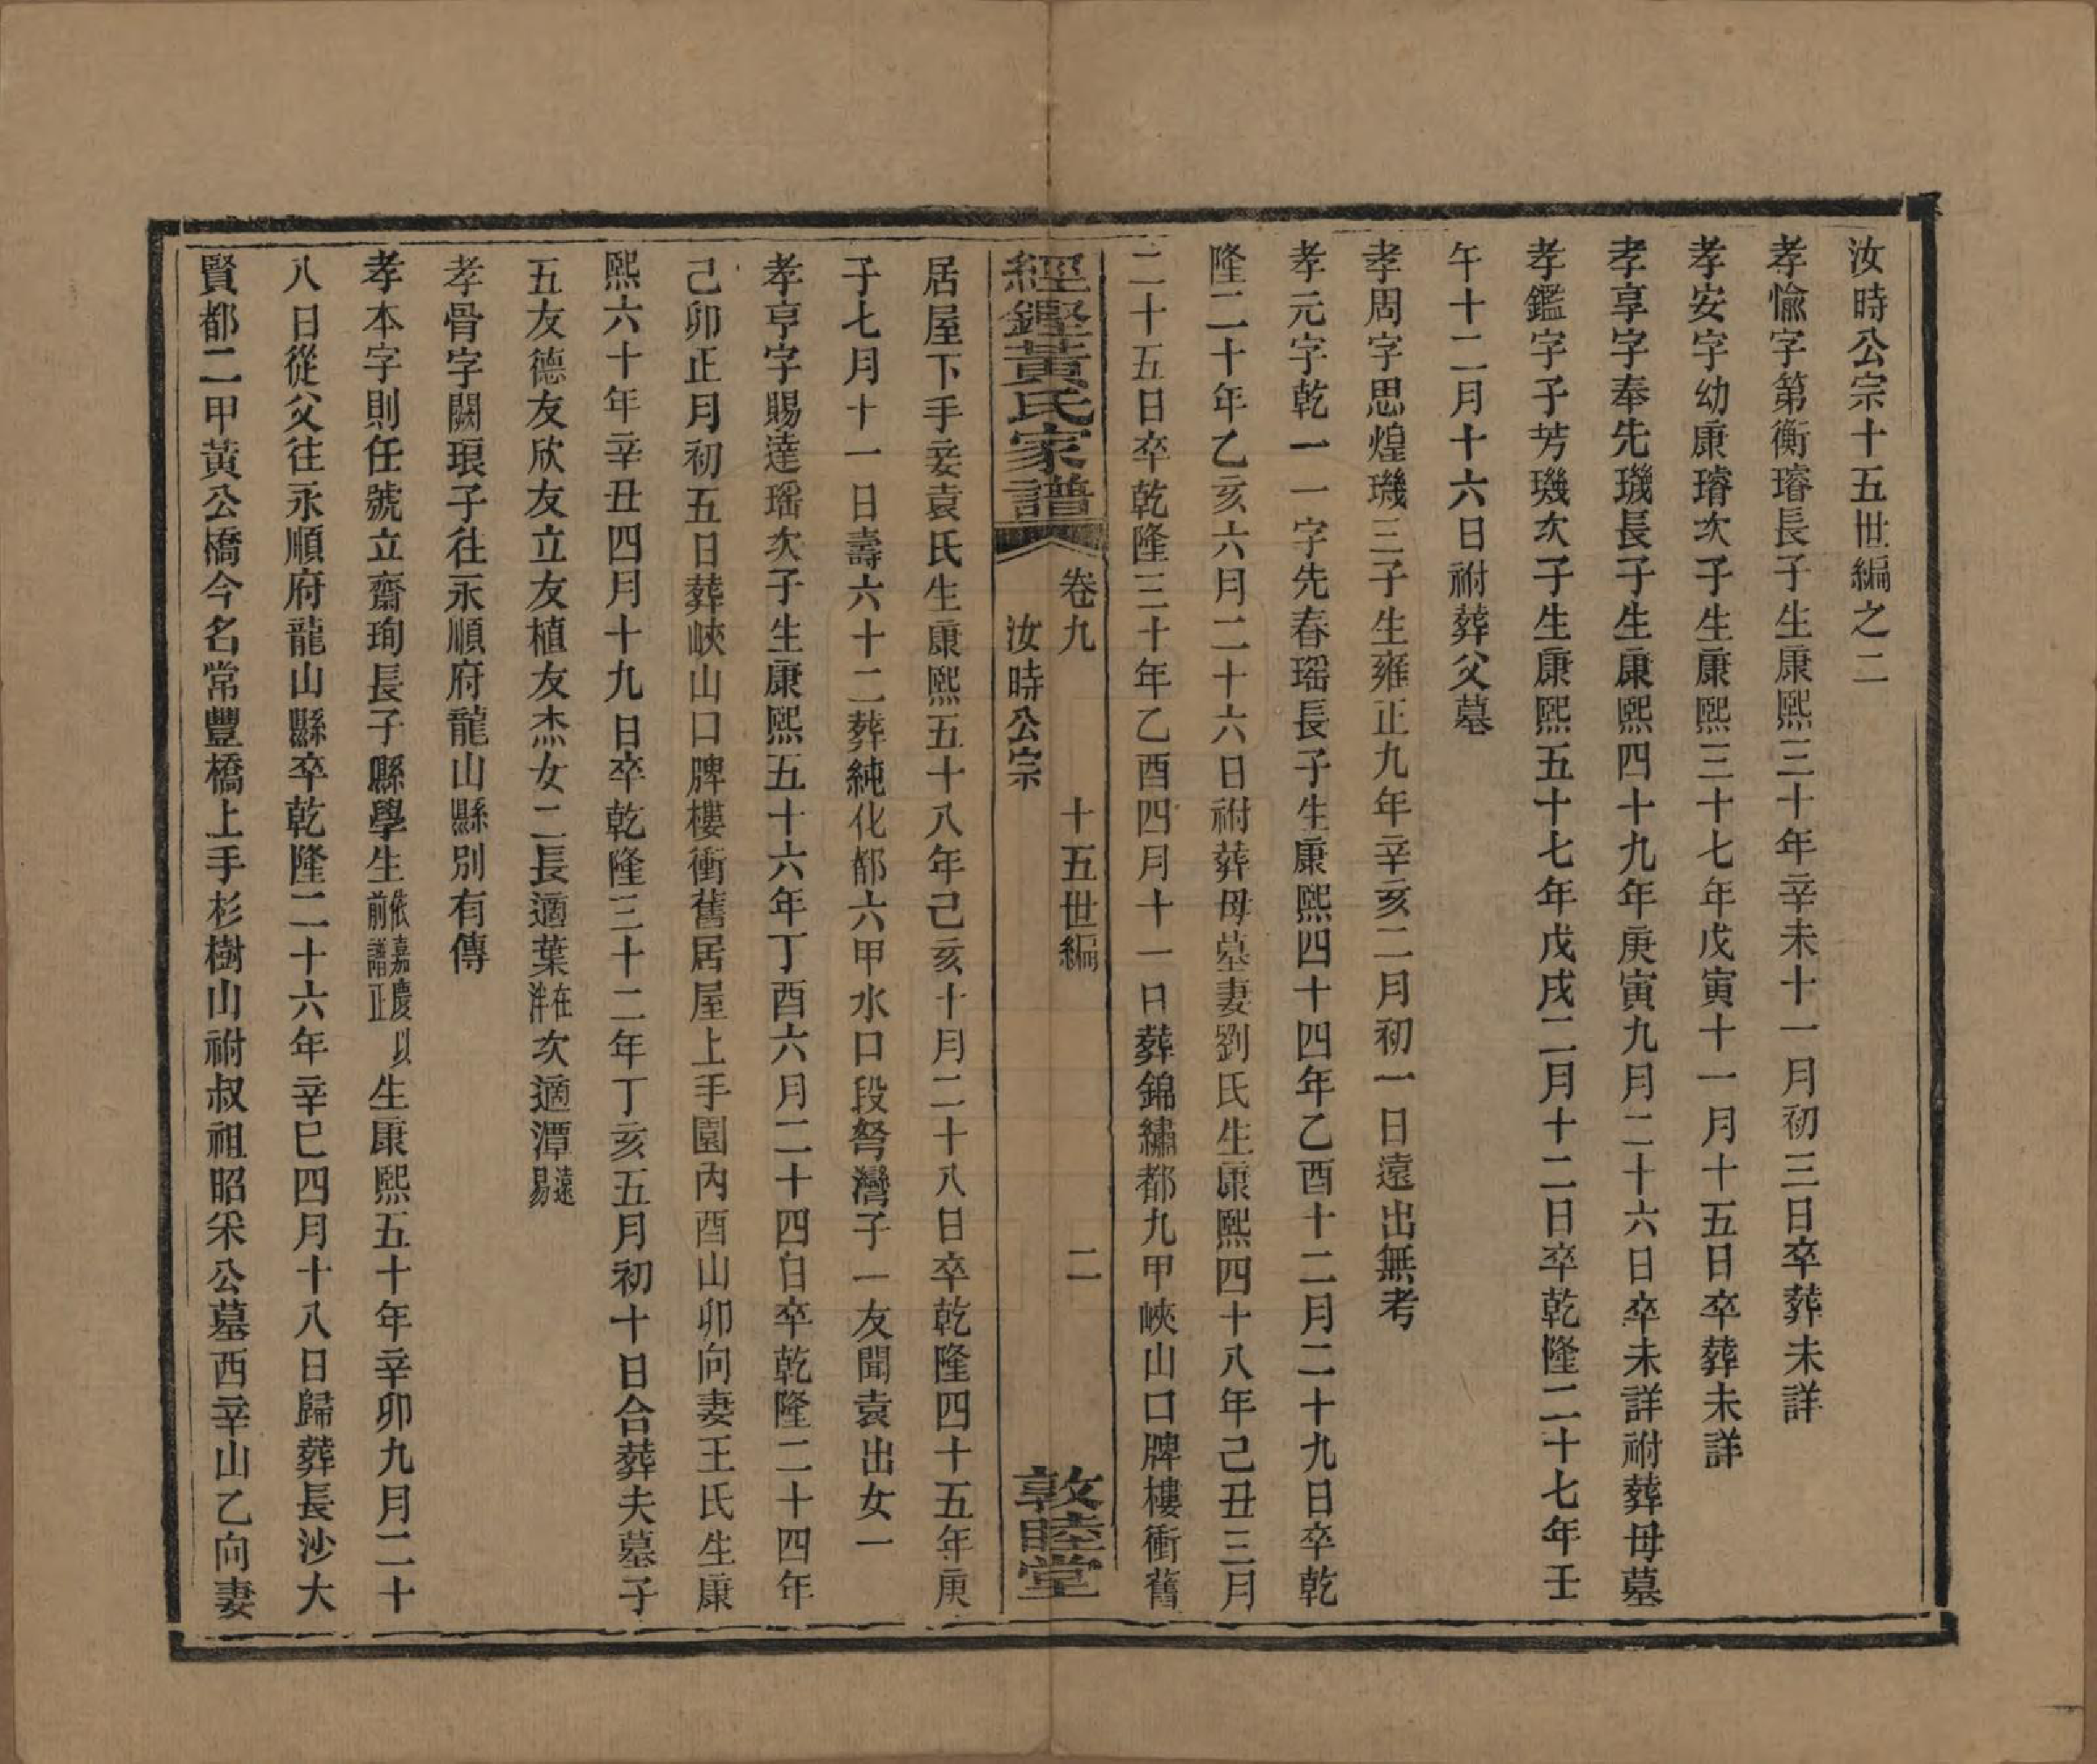 汝時公宗十五世編之二
孝愉字第衡璿長子生康熙三十年辛未十一月初三日卒葬未詳
孝安字幼康璿次子生康熙三十七年戊寅十一月十五日卒葬未詳
孝享字奉先璣長子生康熙四十九年庚寅九月二十六日卒未詳祔葬母墓
孝鑑字子芳璣次子生康熙五十七年戊戌二月十二日卒乾隆二十七年壬
午十二月十六日祔葬父墓
孝周字思煌璣三子生雍正九年辛亥二月初一日遠出無考
孝元字乾一一字先春瑶長子生康熙四十四年乙酉十二月二十九日卒乾
隆二十年乙亥六月二十六日祔葬母墓妻劉氏生康熙四十八年己丑三月
二十五日卒乾隆三十年乙酉四月十一日葬錦繡都九甲峽山口牌樓衝舊
經鏗黃氏家譜 卷九 汝時公宗 十五世編 二 敦睦堂
居屋下手妾袁氏生康熙五十八年己亥十月二十八日卒乾隆四十五年庚
子七月十一日壽六十二葬純化都六甲水口段弩灣子一友聞袁出女一
孝亨字賜達瑶次子生康熙五十六年丁酉六月二十四日卒乾隆二十四年
己卯正月初五日葬峽山口牌樓衝舊居屋上手園內酉山卯向妻王氏生康
熙六十年辛丑四月十九日卒乾隆三十二年丁亥五月初十日合葬夫墓子
五友德友欣友立友植友杰女二長適葉在泮次適潭遠易
孝骨字闕琅子往永順府龍山縣別有傳
孝本字則任號立齋珣長子縣學生依嘉慶以前譜正生康熙五十年辛卯九月二十
八日從父往永順府龍山縣卒乾隆二十六年辛巳四月十八日歸葬長沙大
賢都二甲黃公橋今名常豐橋上手杉樹山祔叔祖昭宷公墓西辛山乙向妻